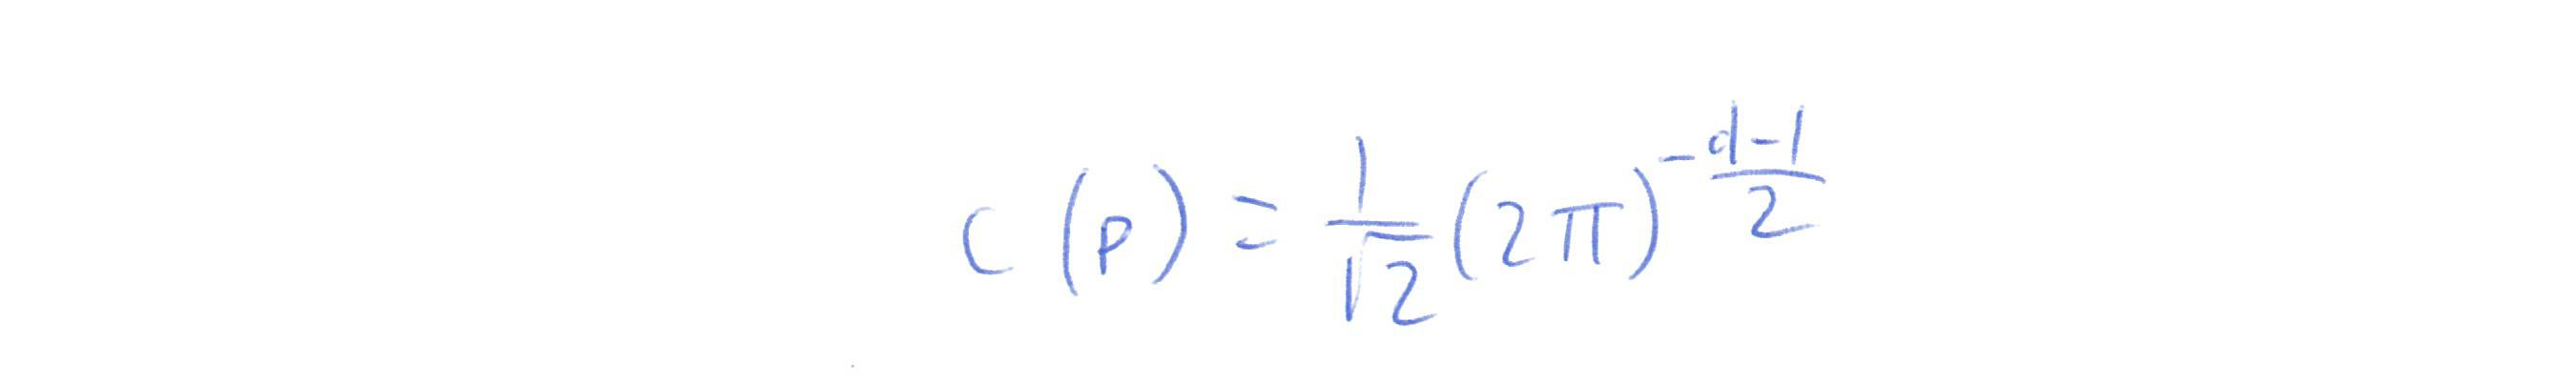 c(p) = \frac{1}{\sqrt{2}} (2\pi)^{-\frac{d-1}{2}}